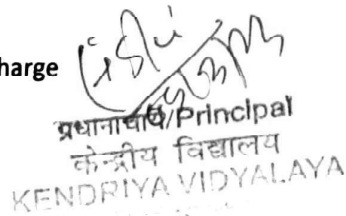 harge
प्रधानाचार्य/Principal
केन्द्रीय विद्यालय
KENDRIYA VIDYALAYA